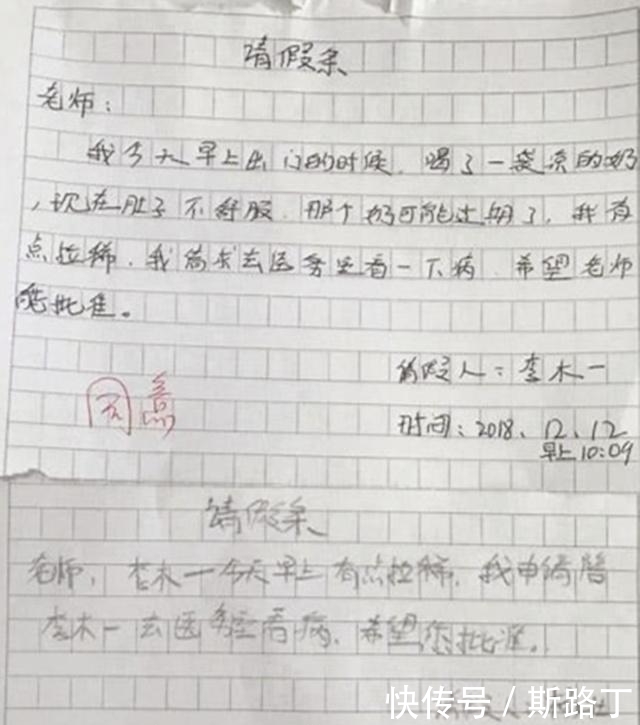 请假条
老师：
我今天早上出门的时候，喝了一袋凉的奶
，现在肚子不舒服，那个奶可能过期了，我有
点拉稀，我请求去医务室看一下病，希望老师
能批准。
请假人：李木一
同意
时间：2018.12.12
早上10:09
请假条
老师，李木一今天早上有点拉稀，我申请陪
李木一去医务室看病，希望您批准。
快传号/斯路丁